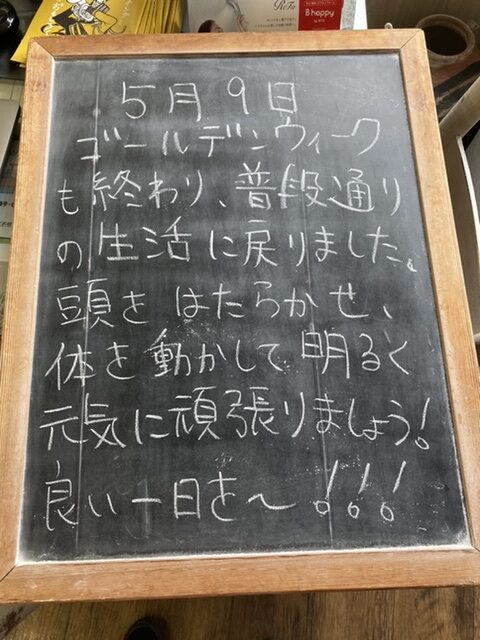 ReFa
B happy
５月９日
ゴールデンウィーク
も終わり、普段通り
の生活に戻りました。
頭をはたらかせ、
体を動かして明るく
元気に頑張りましょう!
良い一日を〜!!!